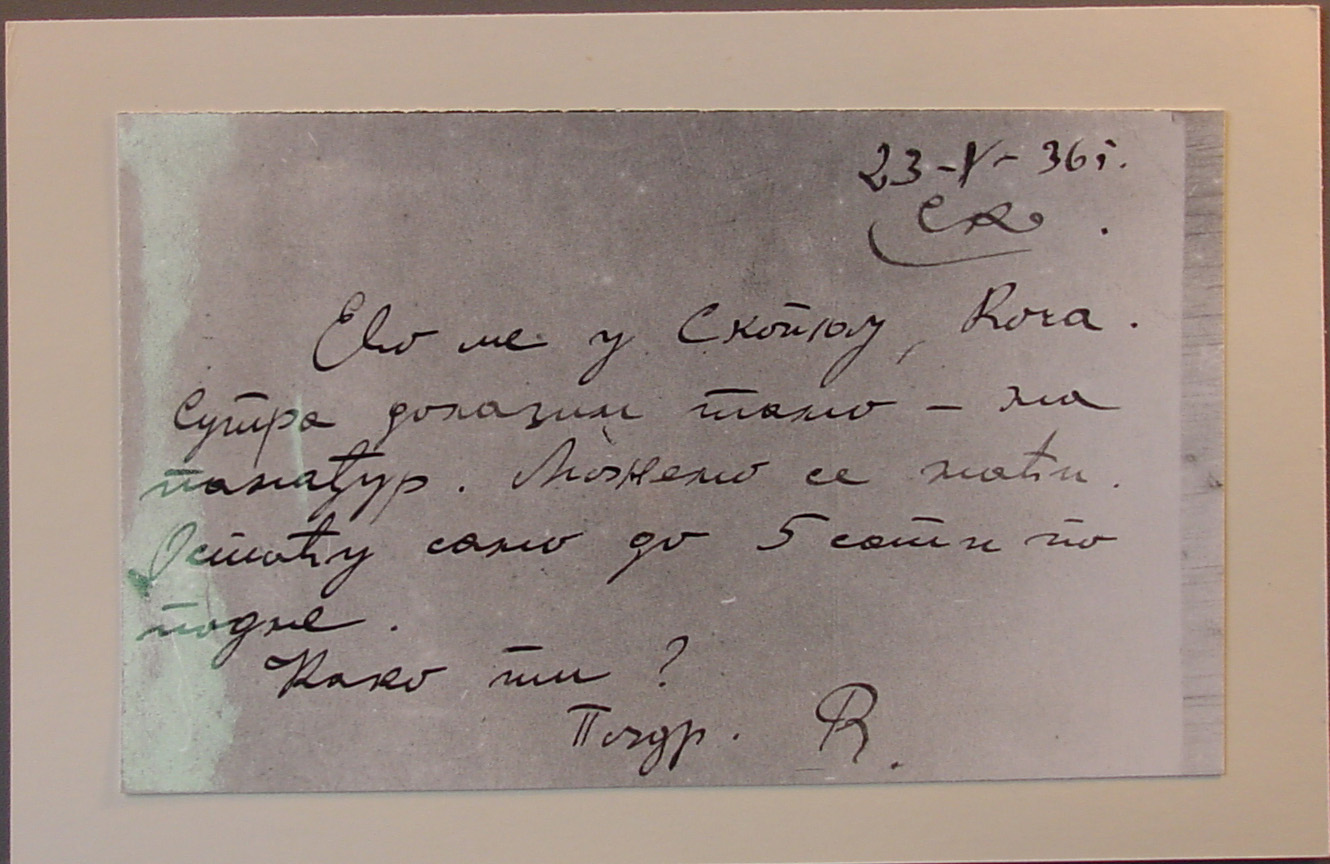 23-V-36 г.
Ск.
Ево ме у Скопљу, Коча.
Сутра долазим тамо – на
панађур. Можемо се наћи.
Остаћу само до 5 сати по
подне.
Како ти?
Поздр. R.